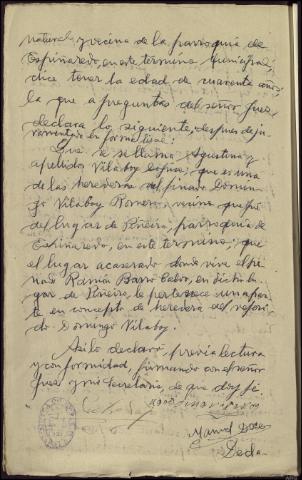 natural y vecina de la parroquia de
Espiñaredo, en este término municipal,
dice tener la edad de cuarenta años,
la que a preguntas del señor Juez
declara lo siguiente, despues de ju-
ramentada en forma legal:
Que se llama Agustina y
apellidos Vilaboy; que es una
de las herederas del finado Domin-
go Vilaboy Romero, vecino que fué
del lugar de Piñeiro, parroquia de
Espiñaredo, en este termino; que
el lugar acasarado donde vive el pai-
sano Ramón Barro Calvo, en dicho lu-
gar de Piñeiro, le pertenece una par-
te en concepto de heredera del referi-
do Domingo Vilaboy.
Asi lo declaró, previa lectura
y conformidad, firmando con el señor
Juez y mi Secretario, de que doy fé.
Manuel